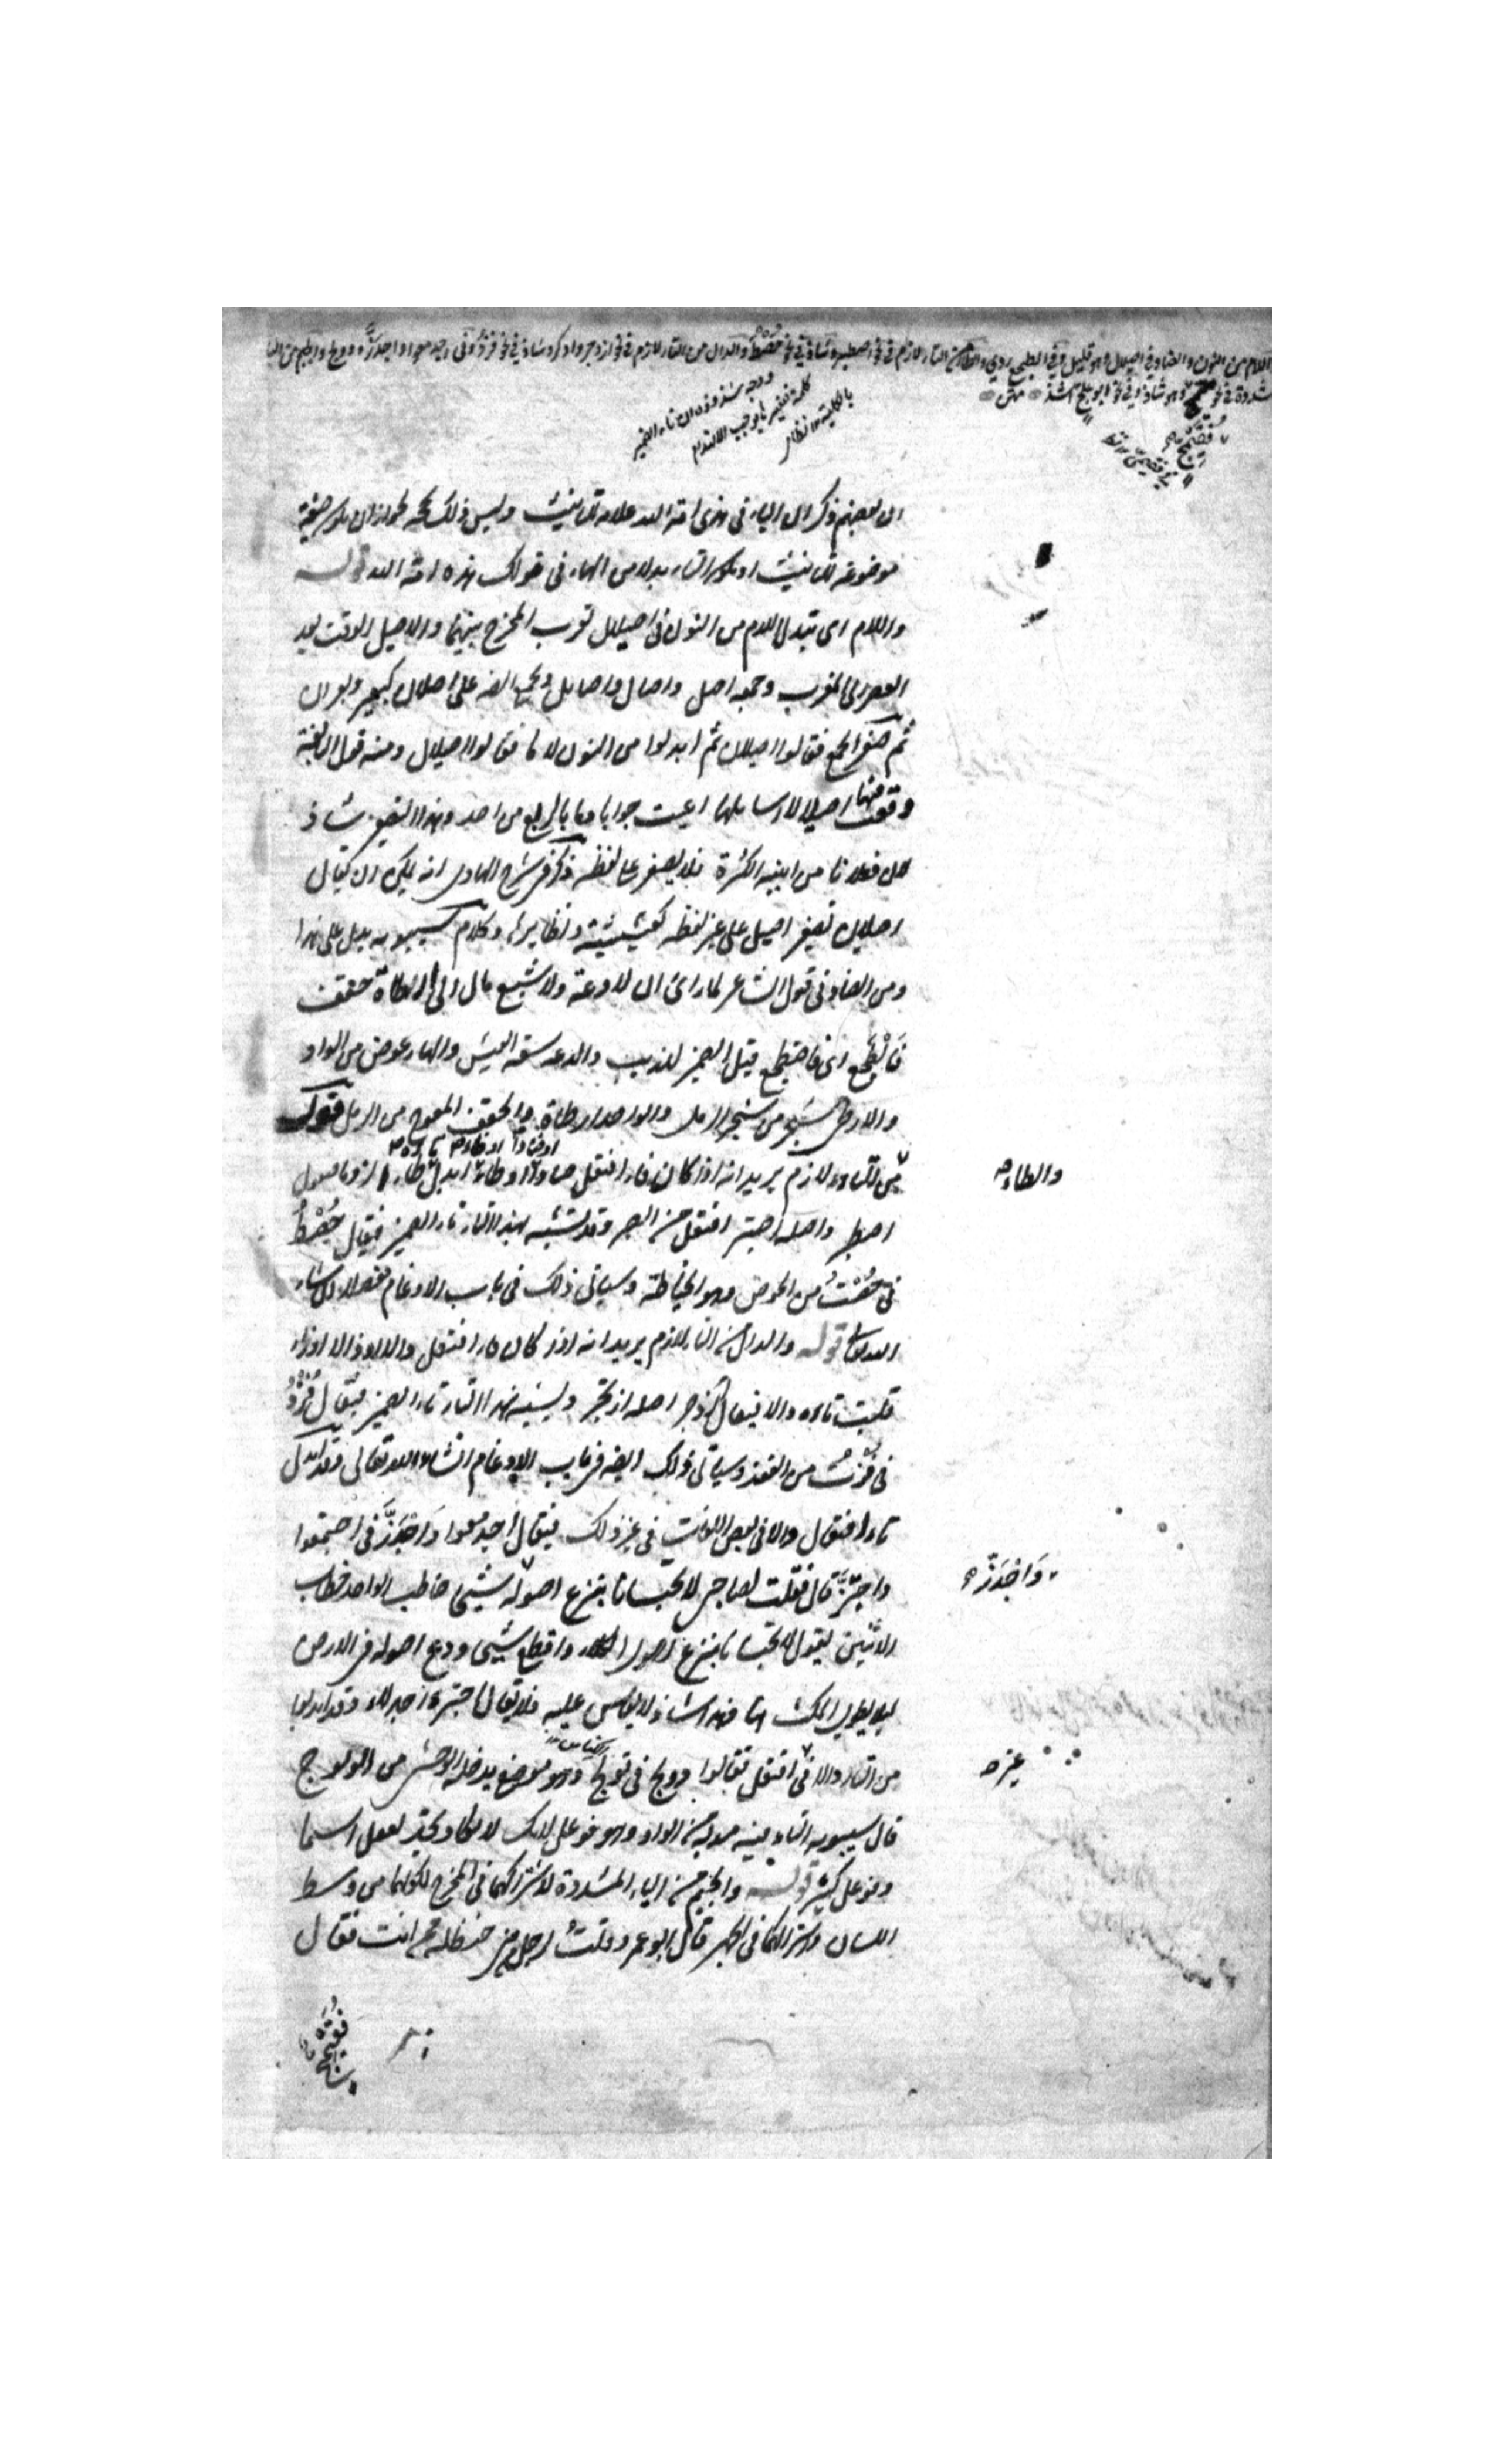 واللام من النون والضاد في اصيلال وهو قليل وفي الطجع ردي والطاء من التاء لازم في نحو اصطبر وشاذ في نحو حصط والدال من التاء لازم في نحو ازدجر وادكر وشاذ في نحو فزد وفي اجدمعوا واجدزّ ودولج والجيم من الياء
المشددة في نحو وهو شاذ وفي نحو ابو علج اشذ متن
ووجه شذوذه ان تاء الضمير
كلمة
ان بعضهم ذكر ان الياء في هذي امة الله علامة للتانيث وليس ذلك بحجة لجواز ان يكون صيغة
موضوعة للتانيث او يكون التاء بدلا من الهاء في قولك هذه امة الله قوله
واللام اى تبدل اللام من النون فى اصيلال لقرب المخرج بينهما والاصيل الوقت بعد
العصر الى المغرب وجمعه اصل واصال واصايل ويجمع ايضا على اصلان كبعير وبعران
ثم صغر الجمع فقالوا اصيلان ثم ابدلوا من النون لاما فقالوا اصيلال ومنه قول النابغة
وقفت فيها اصيلالا اسايلها اعيت جوابا وما بالربع من احد وهذا التصغير شاذ
لان فعلانا من ابنية الكثرة فلا يصغر على لفظه ذكر في شرح الهادى انه يمكن ان يقال
اصلان تصغير اصيل على غير لفظه كعشيشية ونظايرها وكلام سيبويه يدل على هذا
ومن الضاد فى قول الشاعر لما راى ان لا دعة ولا شبع مال الى ارطاة حقف
فَالْطَجَع اى فاضطجع قيل الضمير للذيب والدعة سعة العيش والهاء عوض من الواو
والارطى شجر من شجر الرمل والواحدة ارطاة والحقف المعوج من الرمل قوله
والطاء
من التاء لازم يريد انه اذا كان فاء افتعل صادا او طاء ابدل طاء لزوما فيقول
اصطبر واصله اصتبر افتعل من الصبر وقد تشبه بهذا التاء تاء الضمير فيقال حُصْطُ
فى حُصْتُ من الحوص وهو الخياطة وسياتى ذلك فى باب الادغام مفصلا ان شاء
الله تعالى قوله والدال من التاء لازم يريد انه اذا كان فاء افتعل دالا او ذالا او زاء
قلبت تاءه دالا فيقال ازدجر اصله ازتجر ويشبه بهذا التاء تاء الضمير فيقال فُزْدُ
فى فُزْتُ من الفوز وسياتى ذلك ايضا فى باب الادغام انشاء الله تعالى وقد تبدل
تاء افتعال دالا فى بعض اللغات فى غير ذلك فيقال اجدمعوا وَاجْدَزَّ فى اجتمعوا
وَاجْدَزَّ
واجتزّ قال فقلت لصاحبى لا تحبسانا بنزع اصوله واجدز شيحا خاطب الواحد خطاب
الاثنين يقول لا تحبسانا بنزع اصول الكلاء واقطع شيحا ودع اصوله فى الارض
ليلا يطول المكث هنا فهذا شاذ لا يقاس عليه فلا يقال فى اجترء اجدرء وقد ابدلوا
من التاء دالا فى افتعل فقالوا دولج فى تولج وهو موضع يدخله الوحش من الولوج
غيره
قال سيبويه التاء فيه مبدلة من الواو وهو فوعل لانك لا تكاد تجد تفعل اسما
وفوعل كثير قوله والجيم من الياء المشددة لاشتراكهما فى المخرج لكونهما من وسط
اللسان واشتراكهما فى الجهر قال ابو عمرو وقلت لرجل من حنظلة ممن انت فقال
فقيمج